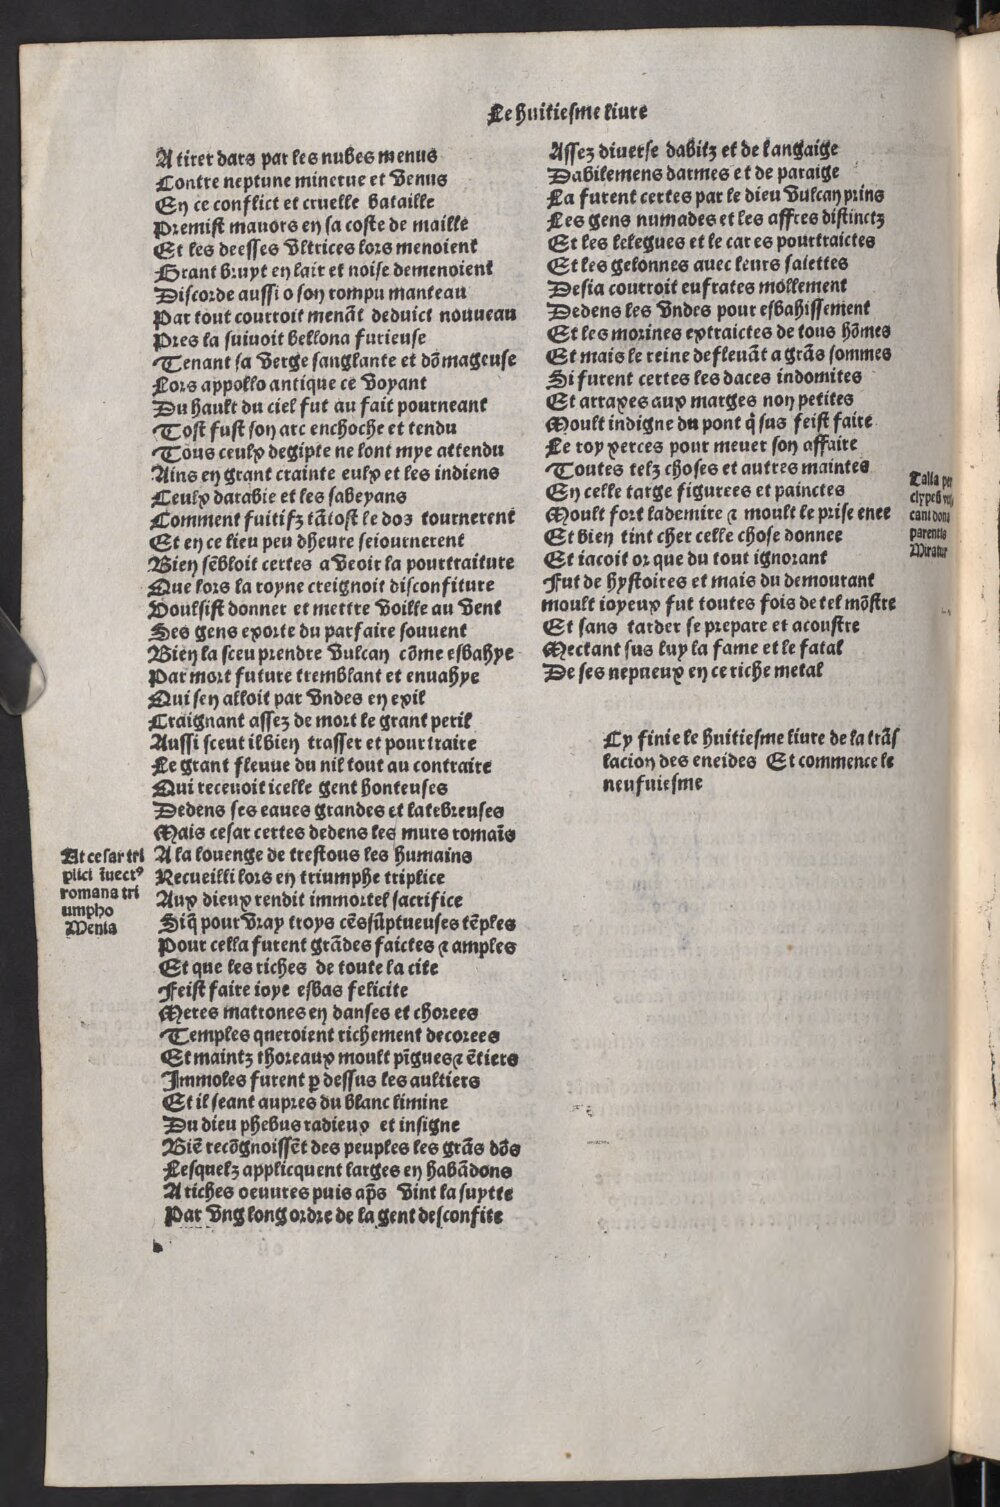 Le huitiesme liure
A tirer dars par les nubes menus
Contre neptune minerue et venus
En ce conflict et cruelle bataille
Premist mauors en sa coste de maille
Et les deesses vltrices lors menoient
Grant bruyt en lair et noise demenoient
Discorde aussi o son rompu manteau
Par tout courroit menãt deduict nouueau
Pres la suiuoit bellona furieuse
Tenant sa verge sanglante et dõmageuse
Lors appollo antique ce voyant
Du hault du ciel fut au fait pourneant
Tost fust son arc enchoche et tendu
Tous ceulx degipte ne lont mye attendu
Ains en grant crainte eulx et les indiens
Ceulx darabie et les sabeyans
Comment fuitifz tãtost le doz tournerent
Et en ce lieu peu dheure seiournerent
Bien sẽbloit certes a veoir la pourtraiture
Que lors la royne creignoit disconfiture
Voulsist donner et mettre voille au vent
Ses gens exorte du parfaire souuent
Bien la sceu prendre vulcan cõme esbahye
Par mort future tremblant et enuahye
Qui sen alloit par vndes en exil
Craignant assez de mort le grant peril
Aussi sceut il bien trasser et pourtraire
Le grant fleuue du nil tout au contraire
Qui receuoit icelle gent honteuses
Dedens ses eaues grandes et latebreuses
Mais cesar certes dedens les murs romaĩs
A la louenge de trestous les humains
Recueilli lors en triumphe triplice
Aux dieux rendit immortel sacrifice
Siq̃ pour vray troys cẽs sũptueuses tẽples
Pour cella furent grãdes faictes ⁊ amples
Et que les riches de toute la cite
Feist faire ioye esbas felicite
Meres matrones en danses et chorees
Temples queroient richement decorees
Et maintz thoreaux moult pĩgues ⁊ ẽtiers
Immoles furent ꝑ dessus les aultiers
Et il seant aupres du blanc limine
Du dieu phebus radieux et insigne
Biẽ recõgnoissẽt des peuples les grãs dõs
Lesquelz applicquent larges en habãdons
A riches oeuures puis ap̃s vint la suytte
Par vng long ordre de la gent desconfite
At cesar tri
plici ĩuectꝰ
romana tri
umpho
Menia
Assez diuerse dabitz et de langaige
Dabilemens darmes et de paraige
La furent certes par le dieu vulcan prins
Les gens numades et les affres distinctz
Et les lelegues et le cares pourtraictes
Et les gelonnes auec leurs saiettes
Desia courroit eufrates mollement
Dedens les vndes pour esbahissement
Et les morines extraictes de tous hõmes
Et mais le reine defleuãt a grãs sommes
Si furent certes les daces indomites
Et arraxes aux marges non petites
Moult indigne du pont q̃ sus feist faire
Le roy xerces pour meuer son affaire
Toutes telz choses et autres maintes
En celle targe figurees et painctes
Moult fort lademire ⁊ moult le prise enee
Et bien tint cher celle chose donnee
Et iacoit or que du tout ignorant
Fut de hystoires et mais du demourant
moult ioyeux fut toutes fois de tel mõstre
Et sans tarder se prepare et acoustre
Mectant sus luy la fame et le fatal
De ses nepueux en ce riche metal
Talia per
clypeũ
cani dona
parentis
Miratur
Cy finie le huitiesme liure de la trãs
lacion des eneides Et commence le
neufuiesme